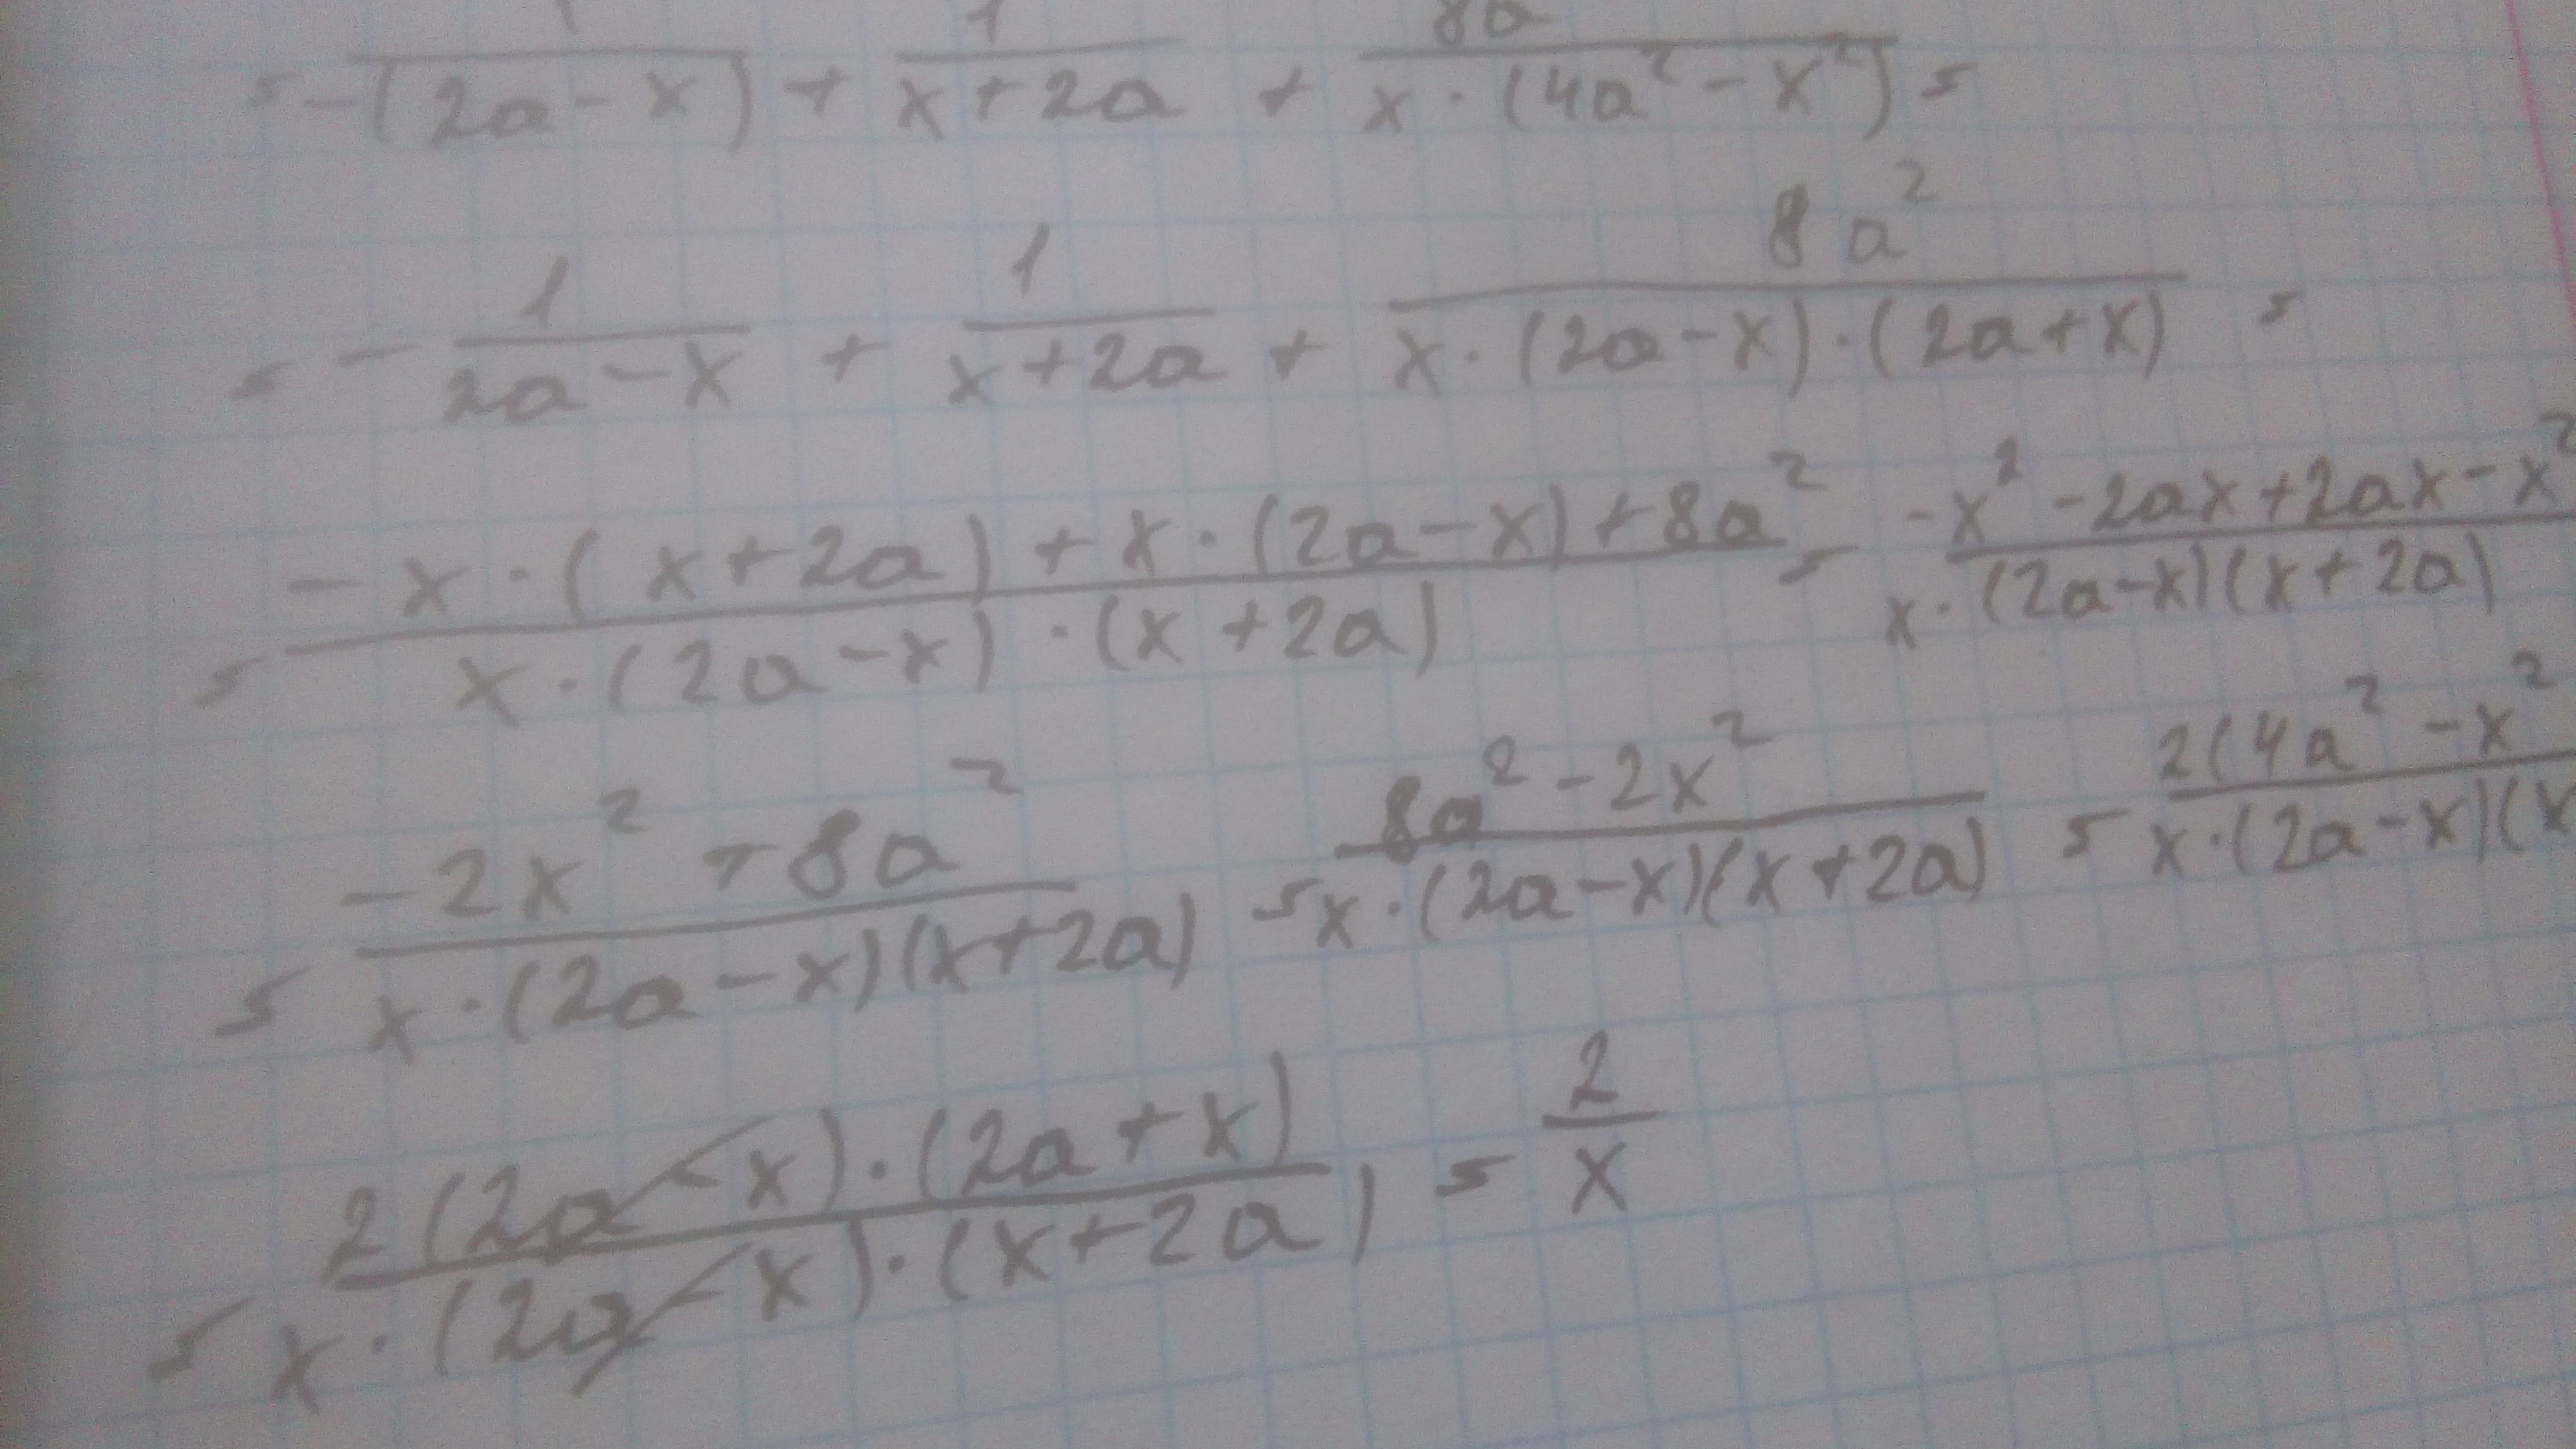 = 1/(-(2a-x)) + 1/(x+2a) + 8a/(x·(4a²-x²)) =
= - 1/(2a-x) + 1/(x+2a) + 8a²/(x·(2a-x)·(2a+x)) =
= (-x·(x+2a)+x·(2a-x)+8a²)/(x·(2a-x)·(x+2a)) = (-x²-2ax+2ax-x²)/(x·(2a-x)(x+2a)
= (-2x²+8a²)/(x·(2a-x)(x+2a)) = (8a²-2x²)/(x·(2a-x)(x+2a)) = 2(4a²-x²/(x·(2a-x)(x
= 2(2a-x)·(2a+x)/(x·(2a-x)·(x+2a)) = 2/x